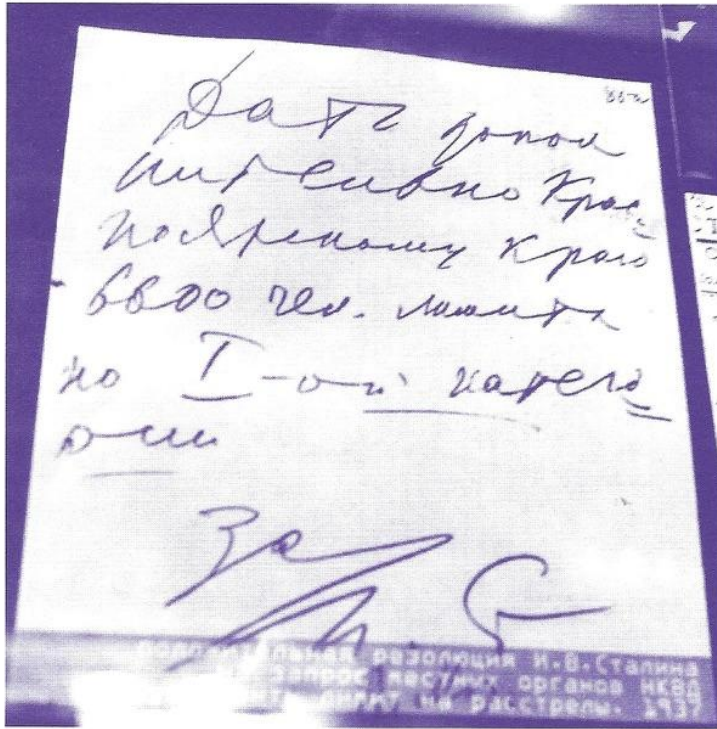 Дать допол
нительно Крас-
ноярскому краю
6600 чел. лимита
по I-ой катего-
рии
За
И. Ст
резолюция И.В.Сталина
запрос местных органов НКВД
лимит на расстрелы. 1937